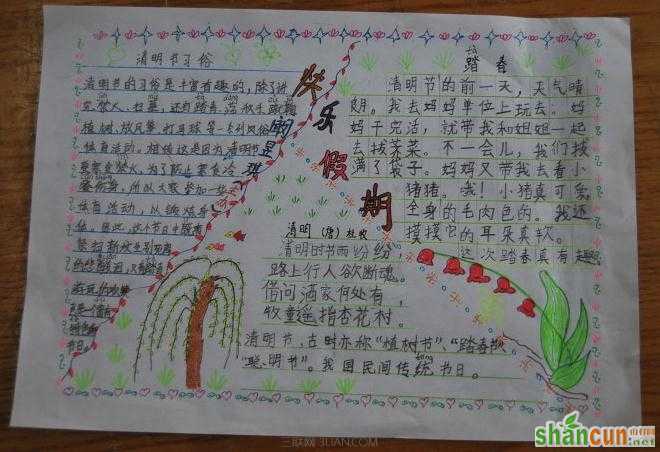 清明节习俗
清明节的习俗是丰富有趣的，除了讲
究禁火、扫墓，还有踏青、荡秋千、蹴鞠、
植树、放风筝、打马球等一系列风俗
体育活动。相传这是因为清明节
要寒食禁火，为了防止寒食冷
餐伤身，所以大家参加一些
体育活动，以锻炼身
体。因此，这个节日中既有
祭扫新坟生别死离
的悲酸泪，又有踏青
游玩的欢笑
节日。
快乐假期
踏春
清明节的前一天，天气晴
朗。我去妈妈单位上玩去。妈
妈干完活，就带我和姐姐一起
去拔荠菜。不一会儿，我们拔
满了袋子。妈妈又带我去看小
猪猪。哦！小猪真可爱
全身的毛肉色的。我还
摸摸它的耳朵真软。
这次踏春真有趣
清明（唐）杜牧
清明时节雨纷纷，
路上行人欲断魂。
借问酒家何处有，
牧童遥指杏花村。
清明节，古时亦称“植树节”、“踏春节”
“聪明节”。我国民间传统节日。
三联网 3LIAN.COM
shancun
山村网
.net